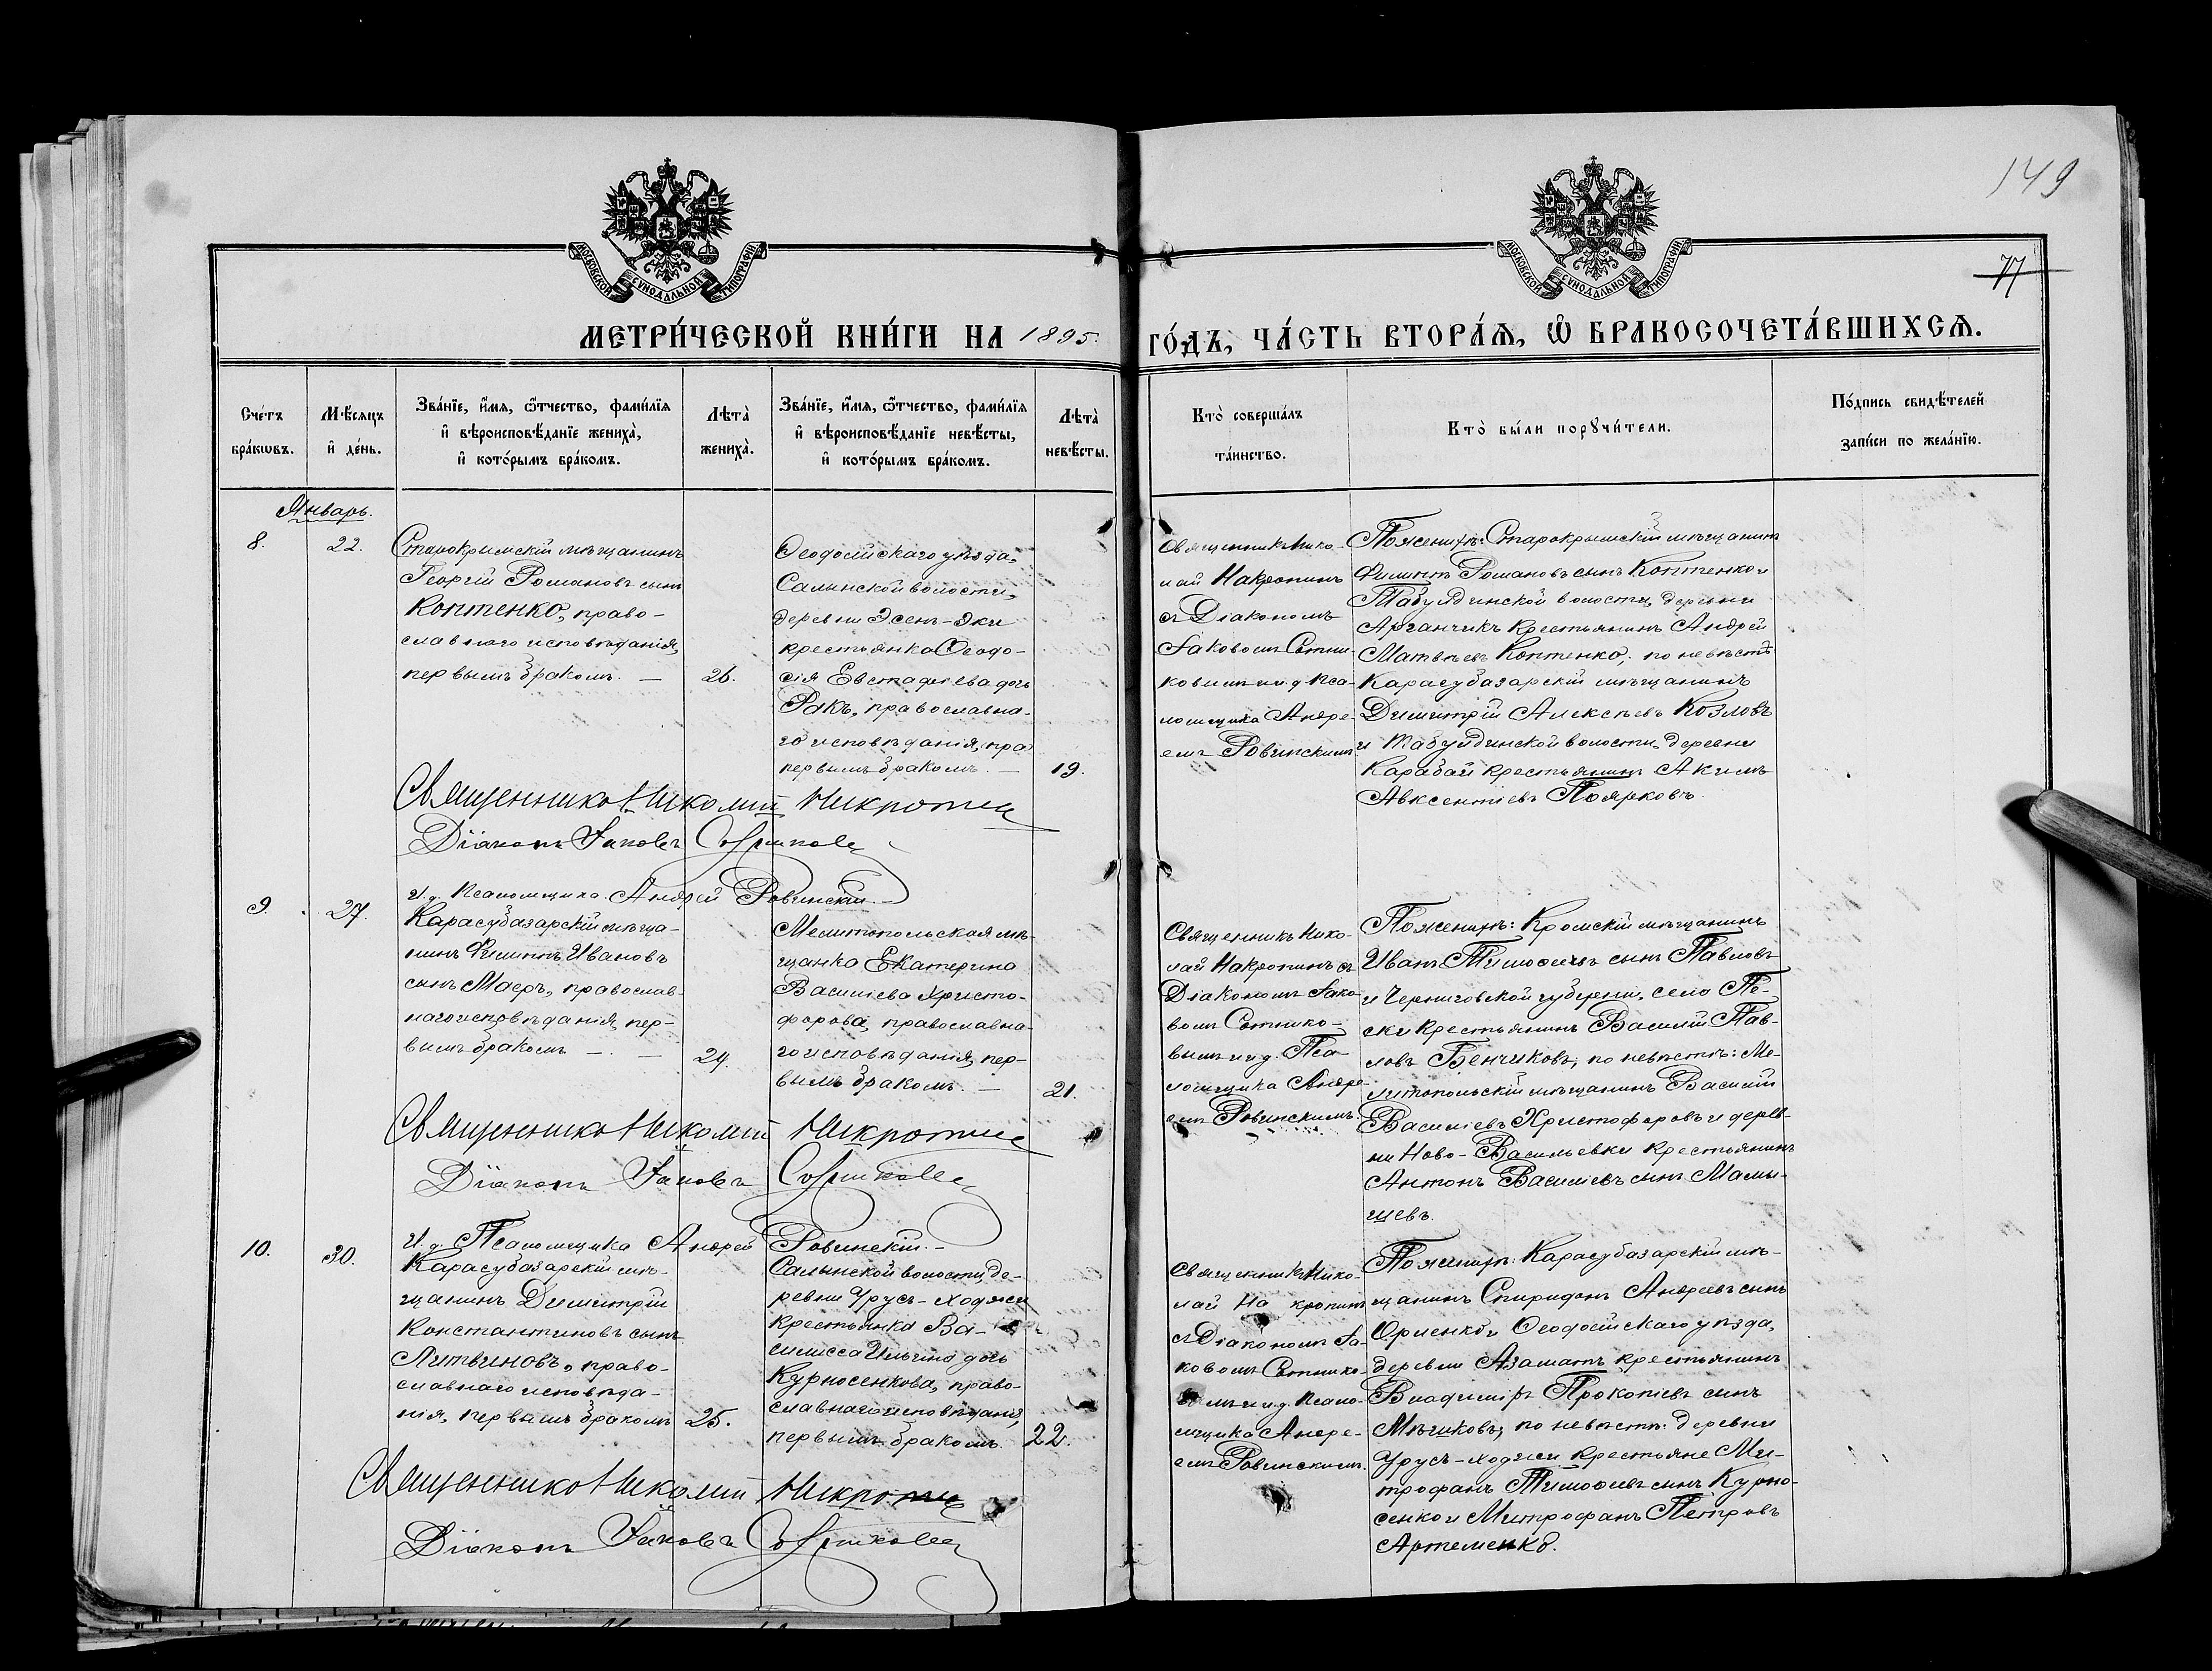 149
77
МОСКОВСКОЙ СУНОДАЛЬНОЙ ТИПОГРАФІИ
МОСКОВСКОЙ СУНОДАЛЬНОЙ ТИПОГРАФІИ
МЕТРИ́ЧЕСКОЙ КНИ́ГИ НА 1895. ГО́ДЪ, ЧА́СТЬ ВТОРА́Ѧ, Ѡ҆ БРАКОСОЧЕТА́ВШИХСѦ.
Сче́тъ
бра́кѡвъ.
Мѣ́сяцъ
и҆ де́нь.
Зва́нїе, и҆́мѧ, ѻ҆́тчество, фами́лїѧ
и҆ вѣроисповѣ́данїе жениха̀,
и҆ кото́рымъ бра́комъ.
Лѣта̀
жениха̀.
Зва́нїе, и҆́мѧ, ѻ҆́тчество, фами́лїѧ
и҆ вѣроисповѣ́данїе невѣ́сты,
и҆ кото́рымъ бра́комъ.
Лѣта̀
невѣ́сты.
Кто̀ соверша́лъ
та́инство.
Кто̀ бы́ли порꙋчи́тели.
По́дпись свидѣ́телей
за́писи по жела́нїю.
Январь.
8.
22.
Старокрымскій мѣщанинъ
Георгій Романовъ сынъ
Коптенко, право-
славнаго исповѣданія,
первымъ бракомъ. —
26.
Ѳеодосійскаго уѣзда,
Салынской волости,
деревни Эсень-Эки
крестьянка Ѳеодо-
сія Евстафіева дочь
Ракъ, православна-
го исповѣданія,
первымъ бракомъ. —
19.
Священникъ Нико-
лай Накропинъ
съ Діакономъ
Іаковомъ Сотни-
ковымъ и и. д. Пса-
ломщика Андре-
емъ Ровинскимъ
По женихѣ: Старокрымскій мѣщанинъ
Филиппъ Романовъ сынъ Коптенко и
Табулдинской волости, деревни
Арганчикъ крестьянинъ Андрей
Матвѣевъ Коптенко; по невѣстѣ
Карасубазарскій мѣщанинъ
Димитрій Алексѣевъ Козловъ
и Табулдинской волости, деревни
Карабай крестьянинъ Акимъ
Авксентіевъ Поярковъ.
Священникъ Николай Накропин
Діаконъ Іаковъ Сотников
И. д. Псаломщика Андрей Ровинскій. —
9.
27.
Карасубазарскій мѣща-
нинъ Филиппъ Ивановъ
сынъ Маеръ, православ-
наго исповѣданія, пер-
вымъ бракомъ —. —
24.
Мелитопольская мѣ-
щанка Екатерина
Василіева Христо-
форова, православна-
го исповѣданія, пер-
вымъ бракомъ. —
21.
Священникъ Нико-
лай Накропинъ съ
Діакономъ Іако-
вомъ Сотнико-
вымъ и и. д. Пса-
ломщика Андре-
емъ Ровинскимъ.
По женихѣ: Кромскій мѣщанинъ
Иванъ Тимоѳеевъ сынъ Павловъ
и Черниговской губерніи, село Пе-
ски крестьянинъ Василій Пав-
ловъ Бенчиковъ; по невѣстѣ: Ме-
литопольскій мѣщанинъ Василій
Василіевъ Христофоровъ и дерев-
ни Ново-Васильевки крестьянинъ
Антонъ Василіевъ сынъ Мамы-
шевъ.
Священникъ Николай Накропин
Діаконъ Іаковъ Сотников
И. д. Псаломщика Андрей Ровинскій. —
10.
30.
Карасубазарскій мѣ-
щанинъ Димитрій
Константиновъ сынъ
Литвиновъ, право-
славнаго исповѣда-
нія, первымъ бракомъ
25.
Салынской волости, де-
ревни Урусъ-Ходжи
крестьянка Ва-
силисса Ильина дочь
Курносенкова, право-
славнаго исповѣданія,
первымъ бракомъ.
22.
Священникъ Нико-
лай Накропинъ
съ Діакономъ Іа-
ковомъ Сотнико-
вымъ и и. д. Псало-
мщика Андре-
емъ Ровинскимъ.
По женихѣ: Карасубазарскій мѣ-
щанинъ Спиридонъ Андреевъ сынъ
Орленко и Ѳеодосійскаго уѣзда,
деревни Азаматъ крестьянинъ
Владиміръ Прокопіевъ сынъ
Мѣшковъ; по невѣстѣ: деревни
Урусъ-Ходжи крестьяне Ми-
трофанъ Тимоѳеевъ сынъ Курно-
сенко и Митрофанъ Петровъ
Артеменко.
Священникъ Николай Накропин
Діаконъ Іаковъ Сотников